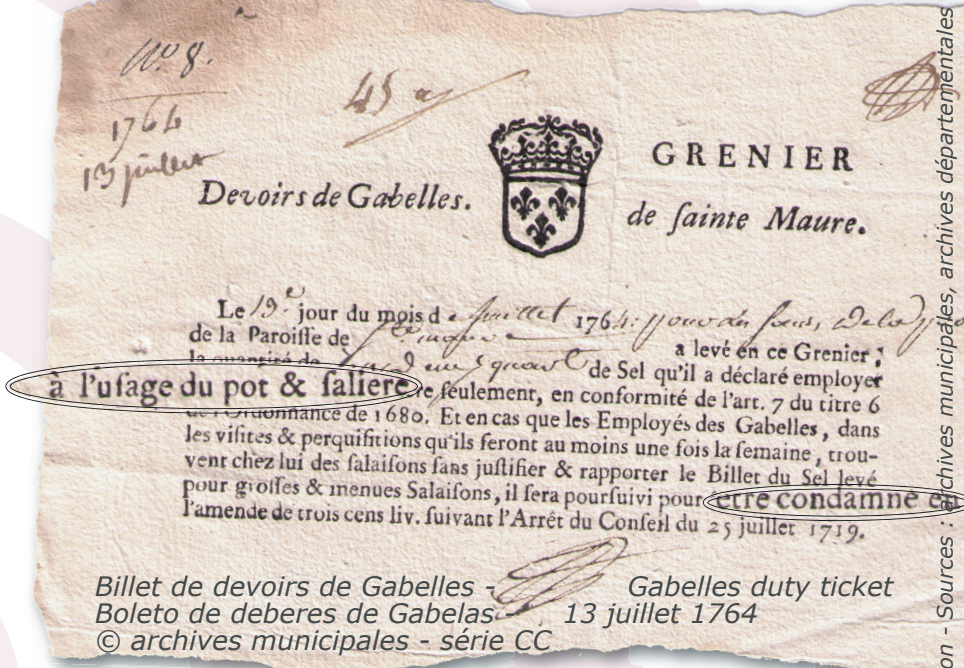 N° 8.
1764
13 juillet
45
Devoirs de Gabelles.
GRENIER
de ſainte Maure.
Le 13e jour du mois de Juillet 1764.
de la Paroiſſe de Ste maure a levé en ce Grenier
la quantité de un quart de Sel qu'il a déclaré employer
à l'uſage du pot & ſaliere ſeulement, en conformité de l'art. 7 du titre 6
de l'Ordonnance de 1680. Et en cas que les Employés des Gabelles, dans
les viſites & perquiſitions qu'ils feront au moins une fois la ſemaine, trou-
vent chez lui des ſalaiſons ſans juſtifier & rapporter le Billet du Sel levé
pour groſſes & menues Salaiſons, il ſera pourſuivi pour être condamné en
l'amende de trois cens liv. ſuivant l'Arrêt du Conſeil du 25 juillet 1719.
Billet de devoirs de Gabelles - Gabelles duty ticket
Boleto de deberes de Gabelas 13 juillet 1764
© archives municipales - série CC
on - Sources : archives municipales, archives départementales